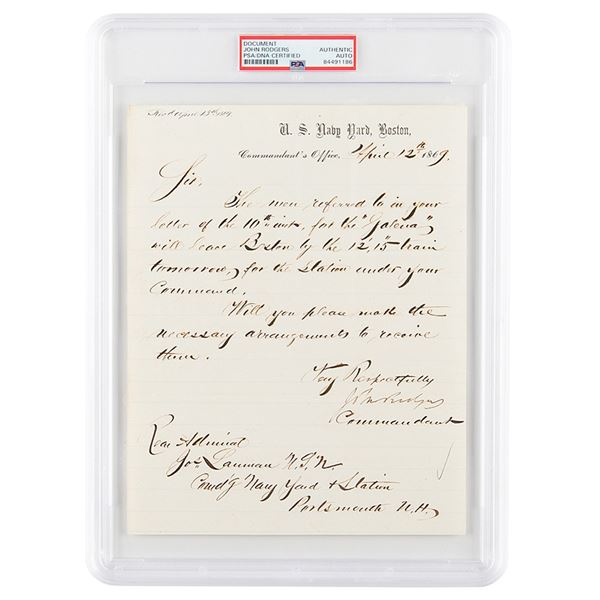 DOCUMENT
JOHN RODGERS
PSA/DNA CERTIFIED
AUTHENTIC
AUTO
84491186
PSA
Recd April 13th 1869
U. S. Navy Yard, Boston,
Commandant's Office, April 12th 1869.
Sir,
The men referred to in your
letter of the 10th inst, for the "Galena",
will leave Boston by the 12,15" train
tomorrow, for the Station under your
Command.
Will you please make the
necessary arrangements to receive
them.
Very Respectfully
John Rodgers
Commandant
Rear Admiral
Jos. Lanman U.S.N.
Comd'g Navy Yard & Station
Portsmouth N.H.